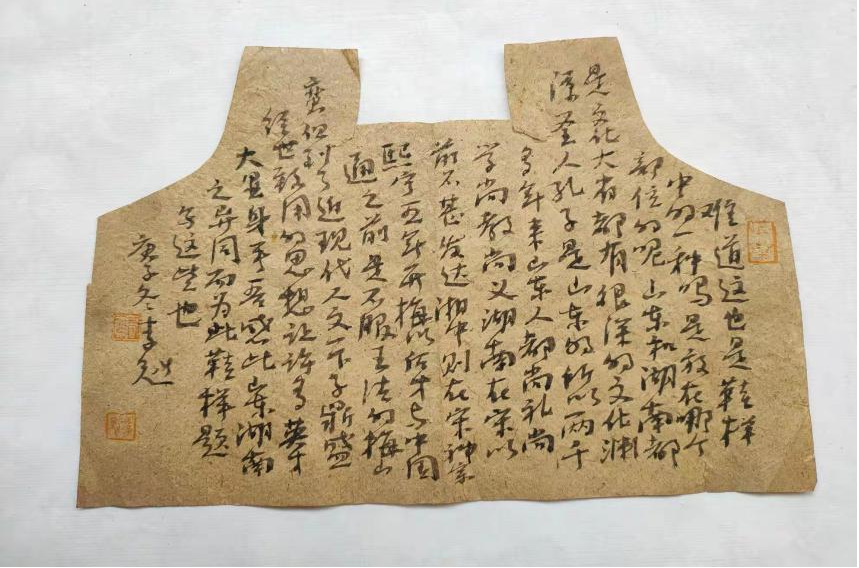 难道这也是鞋样
中的一种吗是放在哪个
部位的呢山东和湖南都
是文化大省都有很深的文化渊
源圣人孔子是山东的所以两千
多年来山东人都尚礼尚
学尚教尚义湖南在宋以
前不甚发达湘中则在宋神宗
熙宁五年开梅以后才与中国
通之前是不服王法的梅山
蛮但到了近现代人文一下子鼎盛
经世致用的思想让许多英才
大显身手吾感此山东湖南
之异同而为此鞋样题
写这些也
庚子冬李